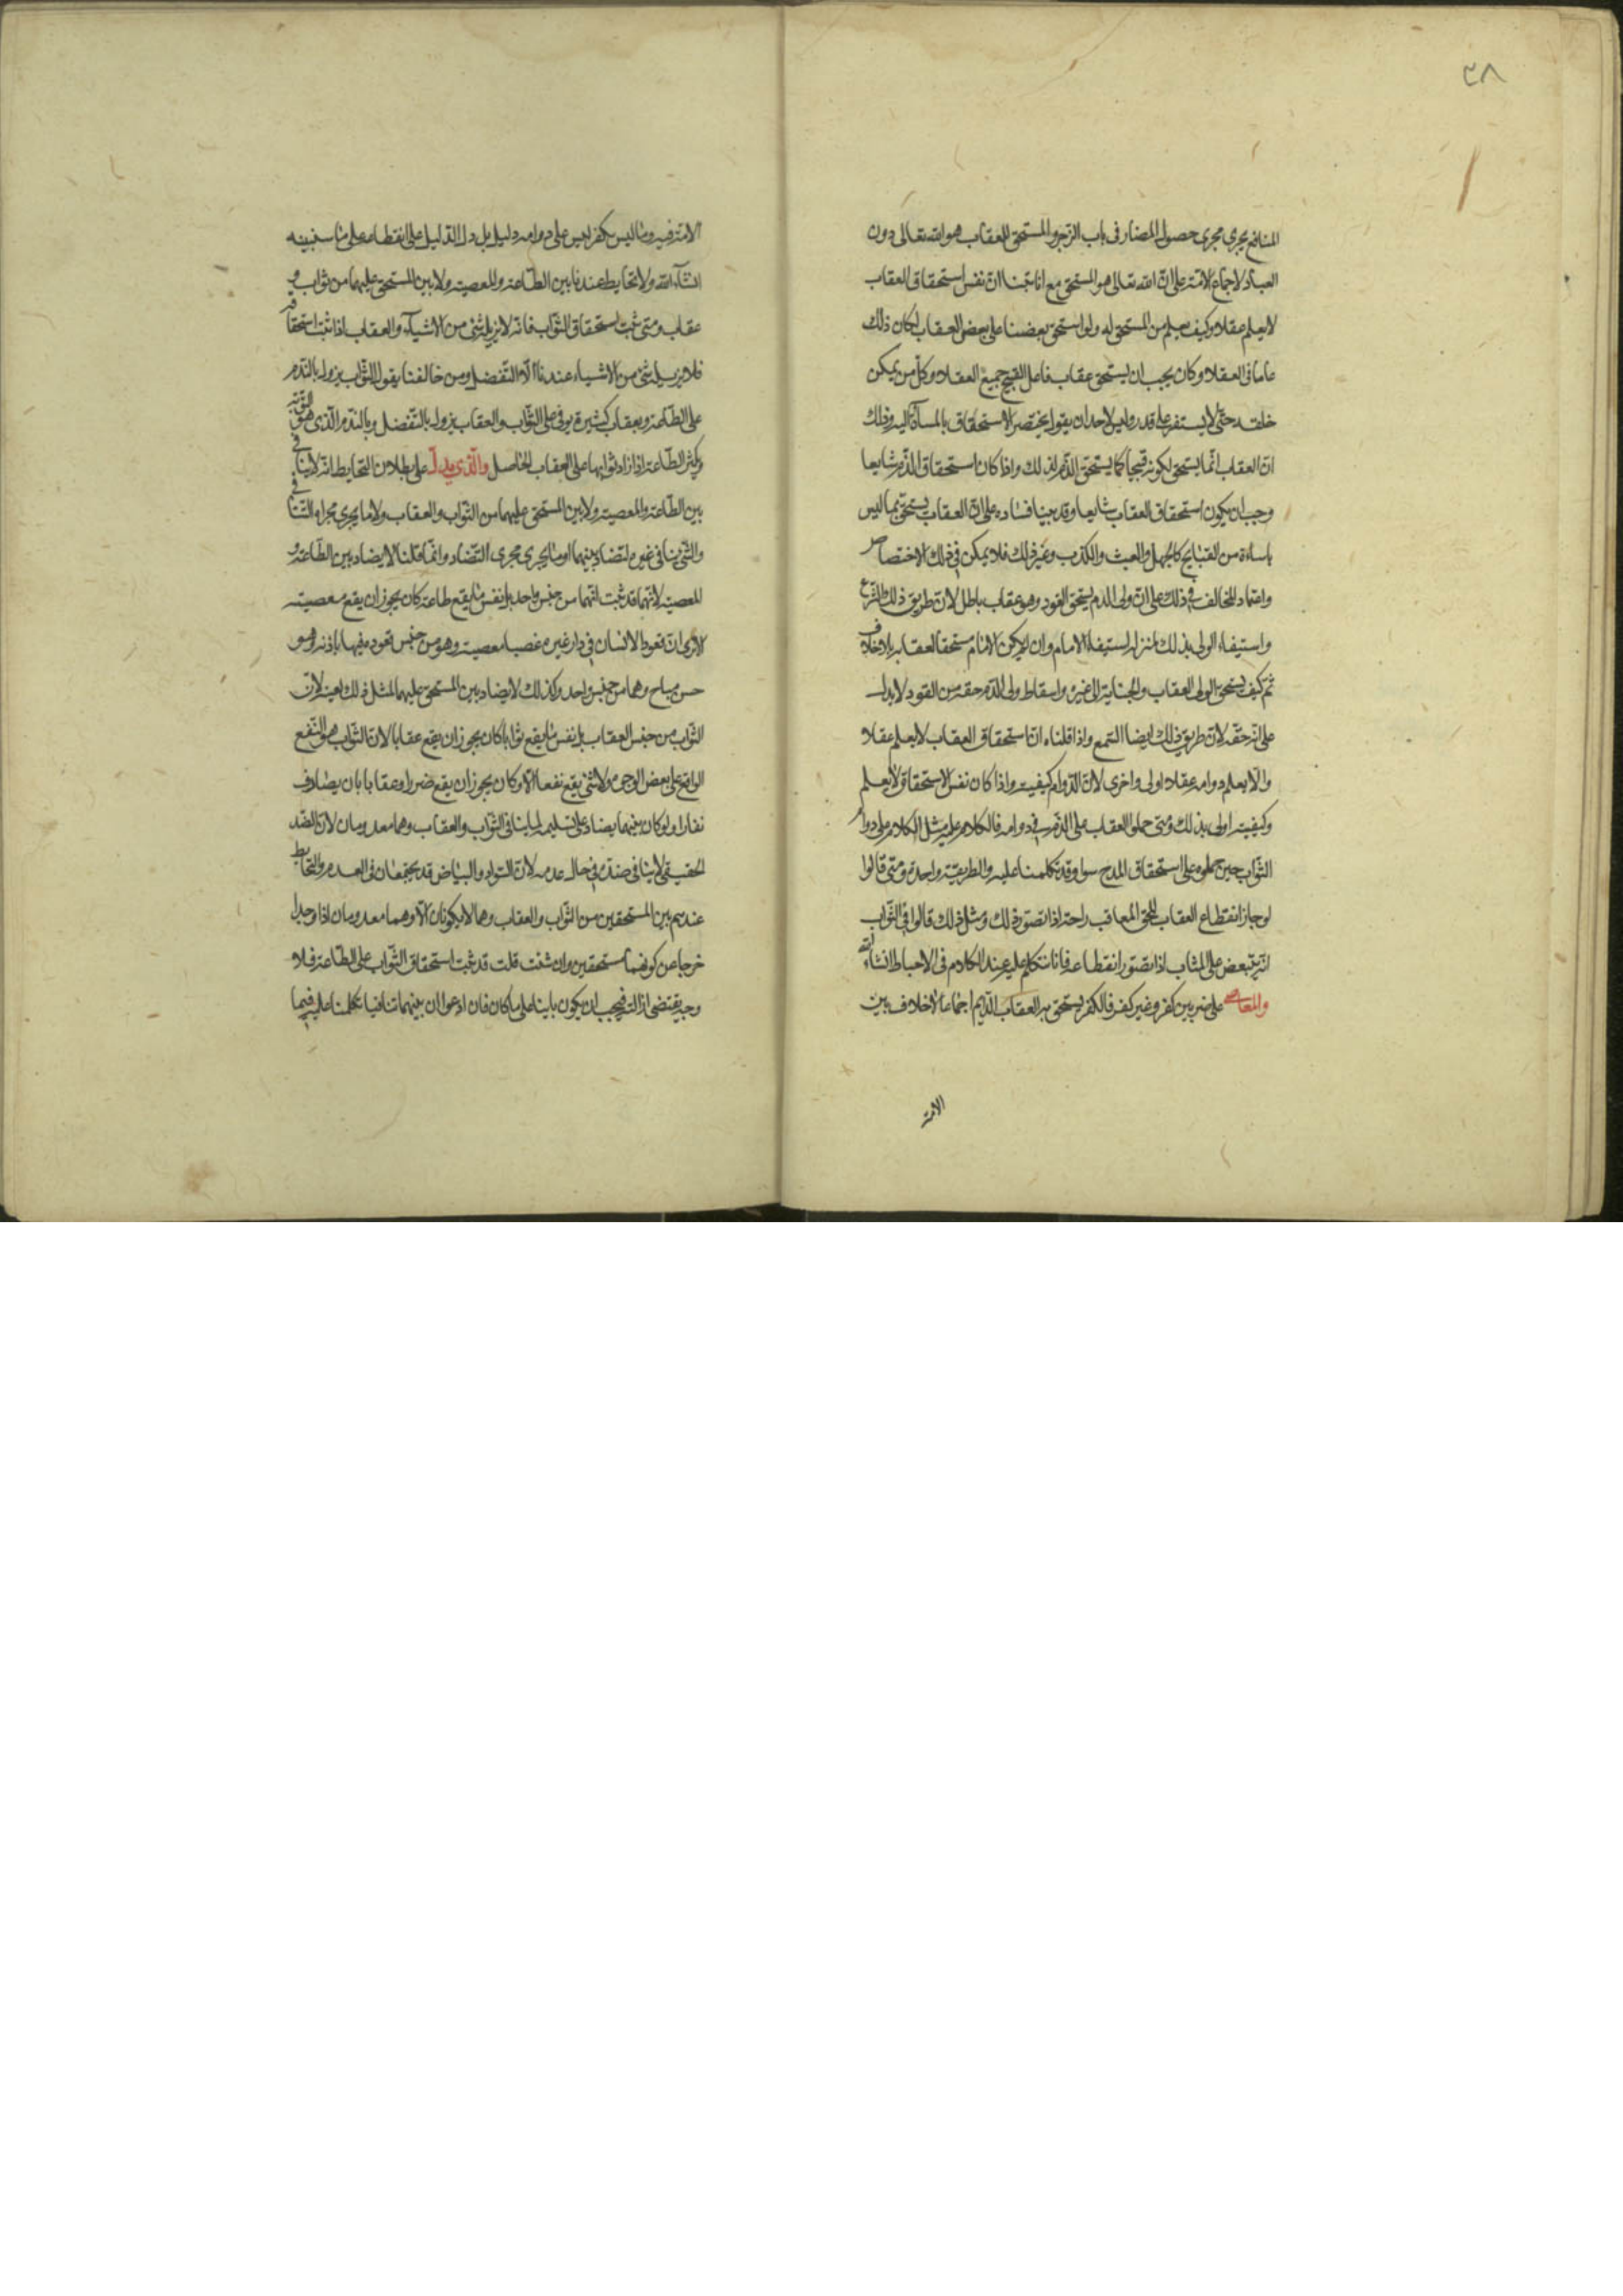 ٣٨
المنافع يجرى مجرى حصول المضار فى باب الزجر والمستحق للعقاب هو الله تعالى دون
العباد لاجماع الامة على ان الله تعالى هو المستحق مع انا بينا ان نفس استحقاق العقاب
لا يعلم عقلا وكيف يعلم من المستحق له ولو استحق بعضنا على بعض العقاب لكان ذلك
عاما فى العقلاء وكان يجب ان يستحق عقاب فاعل القبيح جميع العقلاء وكل من يمكن
خلقه حتى لا يستقر على قدر وليس لاحد ان يقول يختص الاستحقاق بالمساء اليه وذلك
ان العقاب انما يستحق لكونه قبيحا كما يستحق الذم لذلك واذا كان استحقاق الذم شايعا
وجب ان يكون استحقاق العقاب شايعا وقد بينا فساده على ان العقاب يستحق بما ليس
باساءة من القبايح كالجهل والعبث والكذب وغير ذلك فلا يمكن فى ذلك الاختصاص
واعتماد المخالف فى ذلك على ان ولى الدم يستحق القود وهو عقاب باطل لان طريق ذلك الشرع
واستيفاء الولى بذلك بمنزلة استيفاء الامام وان لم يكن الامام مستحقا لعقابه بلا خلاف
ثم كيف يستحق الولى العقاب والجناية الى غيره واسقاط ولى الدم حقه من القود لا يدل
على انه حقه لان طريق ذلك ايضا السمع واذا قلنا ان استحقاق العقاب لا يعلم عقلا
والا يعلم دوامه عقلا اولى واحرى لان الدوام كيفيته واذا كان نفس الاستحقاق لا يعلم
وكيفيته اولى بذلك ومتى حملوا العقاب على الذم فى دوامه فالكلام عليه مثل الكلام على دوام
الثواب حين حملوه على استحقاق المدح سوا وقد تكلمنا عليه والطريقة واحدة ومتى قالوا
لو جاز انقطاع العقاب للحق المعاقب راحة اذا تصور ذلك ومثل ذلك قالوا فى الثواب
انه يتبعض على المثاب اذا تصور انقطاعه فانا نتكلم عليه عند الكلام فى الاحباط انشاء الله
والمعاصى على ضربين كفر وغير كفر فالكفر يستحق به العقاب الدايم اجماعا لا خلاف بين
الامة
الامة فيه وما ليس بكفر ليس على دوامه دليل بل دل الدليل على انقطاعه على ما سنبينه
انشاء الله ولا تحابط عندنا بين الطاعة والمعصية ولا بين المستحق عليهما من ثواب و
عقاب ومتى ثبت استحقاق الثواب فانه لا يزيله شئ من الاشياء والعقاب اذا ثبت استحقاقه
فلا يزيله شئ من الاشياء عندنا الا التفضل ومن خالفنا يقول الثواب يزول بالندم
على الطاعة وبعقاب كثيرة يوفى على الثواب والعقاب يزول بالتفضل وبالندم الذى هو التوبة
وبكثر الطاعة اذا زاد ثوابها على العقاب الحاصل والذى يدل على بطلان التحابط انه لا ينافى
بين الطاعة والمعصية ولا بين المستحق عليهما من الثواب والعقاب ولا ما يجرى مجراه التنافى
والشئ ينافى غيره لتضاد بينهما او ما يجرى مجرى التضاد وانما قلنا لا يضاد بين الطاعة و
المعصية لانهما قد ثبت انهما من جنس واحد بل نفس ما يقع طاعة كان يجوز ان يقع معصية
الا ترى ان قعود الانسان فى دار غيره غصبا معصية وهو من جنس قعوده فيها باذنه وهو
حسن مباح وهما من جنس واحد وكذلك لا يضاد بين المستحق عليهما لمثل ذلك بعينه لان
الثواب من جنس العقاب بل نفس ما يقع ثوابا كان يجوز ان يقع عقابا لان الثواب هو النفع
الواقع على بعض الوجوه ولا شئ يقع نفعا الا وكان يجوز ان يقع ضررا وعقابا بان يصادف
نفارا ولو كان بينهما يضاد على تسليمه لما ينافى الثواب والعقاب وهما معدومان لان الضد
الحقيقى لا ينافى ضده فى حال عدمه لان السواد والبياض قد يجتمعان فى العدم والتحابط
عندهم بين المستحقين من الثواب والعقاب وهما لا يكونان الا وهما معدومان اذا وجدا
خرجا عن كونهما مستحقين وان شئت قلت قد ثبت استحقاق الثواب على الطاعة فلا
وجه يقتضى ازالته فيجب ان يكون باينا على ما كان فان ادعوا ان بينهما تنافيا تكلمنا عليه فيما